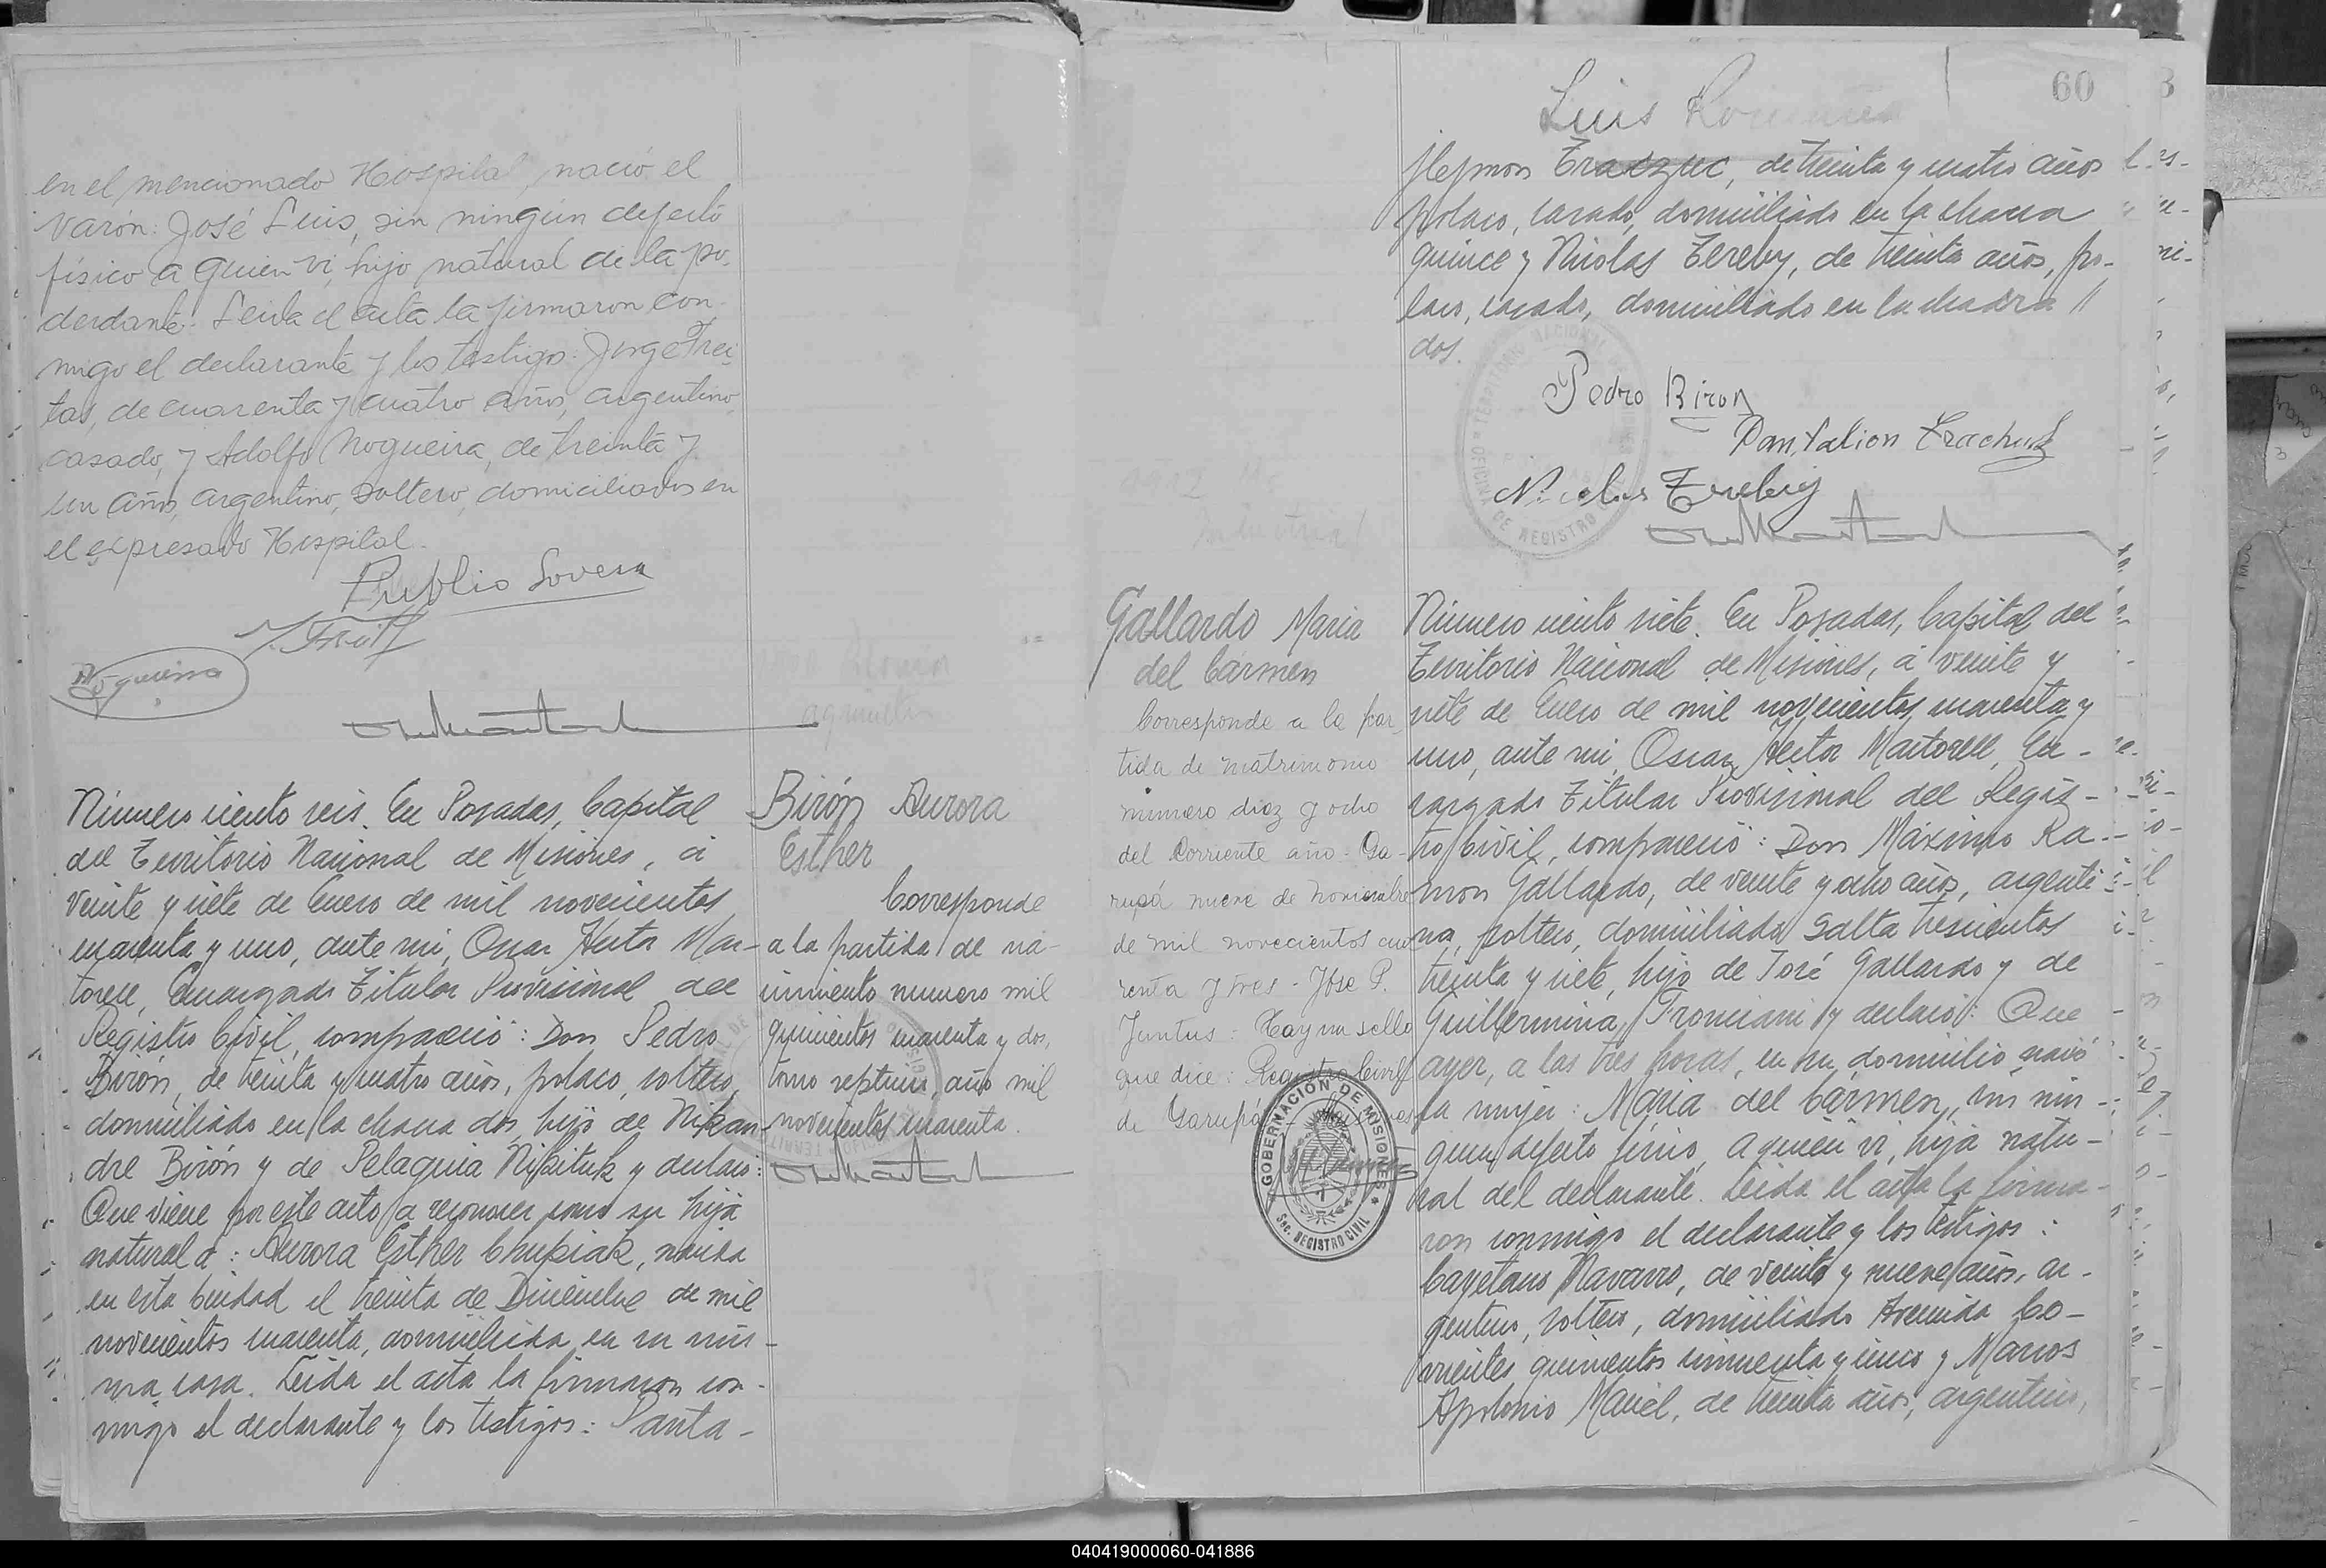 en el mencionado Hospital, nació el
varón: José Luis, sin ningún defecto
físico a quien vi, hijo natural de la po-
derdante. Leída el acta la firmaron con-
migo el declarante y los testigos: Jorge Frei-
tas, de cuarenta y cuatro años, argentino,
casado, y Adolfo Nogueira, de treinta y
un años, argentino, soltero, domiciliados en
el expresado Hospital.
Publio Lovera
J. Freit
Nogueira
Número ciento seis. En Posadas, Capital
del Territorio Nacional de Misiones, a
veinte y siete de Enero de mil novecientos
cuarenta y uno, ante mi, Oscar Hector Mar-
torell, Encargado Titular Provisional del
Registro Civil, compareció: Don Pedro
Birón, de treinta y cuatro años, polaco, soltero,
domiciliado en la chacra dos, hijo de Nikan-
dre Birón y de Pelaguia Nikituk y declaró:
Que viene por este acto a reconocer como su hija
natural a: Aurora Esther Chupiak, nacida
en esta Ciudad el treinta de Diciembre de mil
novecientos cuarenta, domiciliada en su mis-
ma casa. Leída el acta la firmaron con-
migo el declarante y los testigos: Panta-
Birón Aurora
Esther
Corresponde
a la partida de na-
cimiento numero mil
quinientos cuarenta y dos,
tomo septimo, año mil
novecientos cuarenta.
60
Luis
de treinta y cuatro años
polaco, casado, domiciliado en la chacra
quince y Nicolas Tereby, de treinta años, po-
laco, casado, domiciliado en la chacra //
dos.
Pedro Biron
Pantalion
Nicolas
Gallardo Maria
del Cármen
Corresponde a la par-
tida de matrimonio
número diez y ocho
del Corriente año. Ga-
rupá nueve de Noviembre
de mil novecientos cua-
renta y tres - Jóse P.
Juntus: Hay un sello
que dice: Registro Civil
de Garupá - Misiones
GOBERNACIÓN DE MISIONES
Sec. REGISTRO CIVIL
Número ciento siete. En Posadas, Capital del
Territorio Nacional de Misiones, a veinte y
siete de Enero de mil novecientos cuarenta y
uno, ante mi, Oscar Hector Martorell, En-
cargado Titular Provisional del Regis-
tro Civil, compareció: Don Máximo Ra-
mon Gallardo, de veinte y ocho años, argenti-
no, soltero, domiciliado Salta trescientos
treinta y siete, hijo de José Gallardo y de
Guillermina Tronciani y declaró: Que
ayer, a las tres horas, en su domicilio, nació
la mujer: Maria del Cármen, sin nin-
gun defecto físico, a quien vi, hija natu-
ral del declarante. Leída el acta la firma-
ron conmigo el declarante y los testigos:
Cayetano Navarro, de veinte y nueve años, ar-
gentino, soltero, domiciliado Avenida Co-
rrientes quinientos cincuenta y cinco y Marcos
Apolonio Maciel, de treinta años, argentino,
040419000060-041886